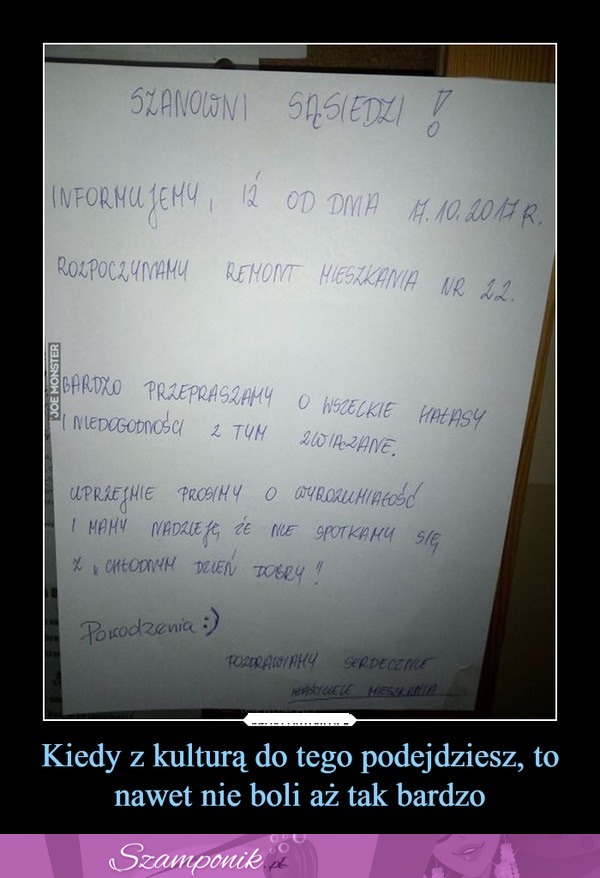 SZANOWNI SĄSIEDZI!
INFORMUJEMY, IŻ OD DNIA 17.10.2017 R.
ROZPOCZYNAMY REMONT MIESZKANIA NR 22.
BARDZO PRZEPRASZAMY O WSZELKIE HAŁASY
I NIEDOGODNOŚCI Z TYM ZWIĄZANE.
UPRZEJMIE PROSIMY O WYROZUMIAŁOŚĆ
I MAMY NADZIEJĘ ŻE NIE SPOTKAMY SIĘ
Z "CHŁODNYM DZIEŃ DOBRY"
Powodzenia :)
POZDRAWIAMY SERDECZNIE
WŁAŚCICIELE MIESZKANIA
JOE MONSTER
Kiedy z kulturą do tego podejdziesz, to
nawet nie boli aż tak bardzo
Szamponik.pl